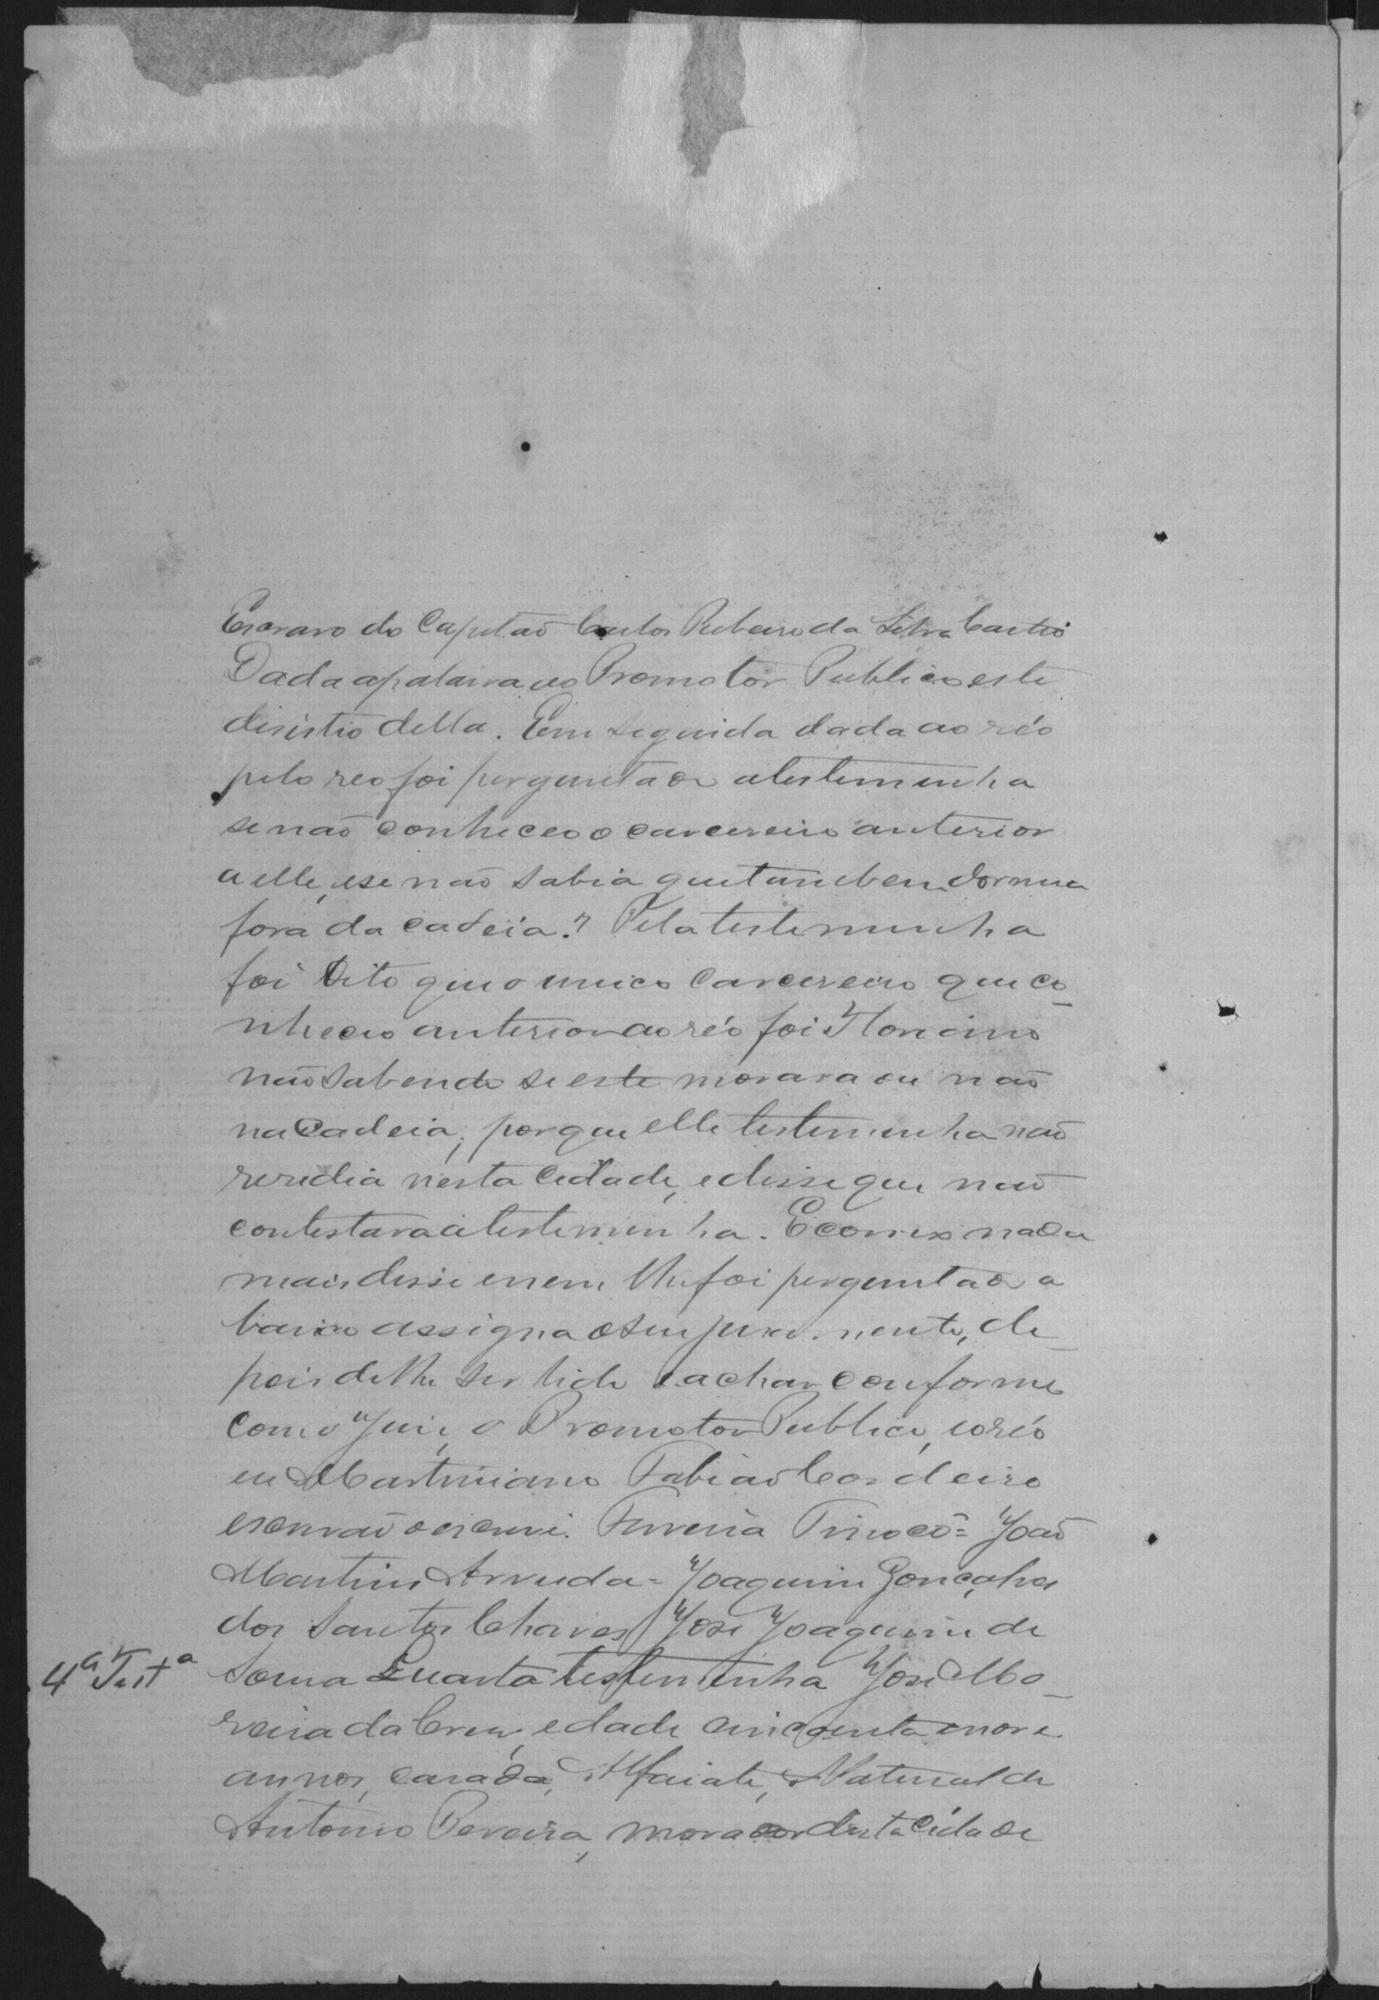 Escravo do Capitão Carlos Ribeiro da Silva Castro
Dada a palavra ao Promotor Publico este
disistio della. Em seguida dada ao réo
pelo reo foi perguntado a testemunha
se não conheceo o carcereiro anterior
a elle, e se não sabia que tambem dormia
fora da cadeia? Pela testemunha
foi dito que o unico Carcereiro que co_
nheceo anterior ao réo foi Florcino
não sabendo se este morava ou não
na Cadeia, porque elle testemunha não
residia nesta Cidade, e disse que não
contestava a testemunha. E como nada
mais disse e nem lhe foi perguntado a
baixo assigna o seu juramento, de_
pois de lhe ser lido e achar conforme
com o Juiz, o Promotor Publico, e o réo
eu Martiniano Fabião Cordeiro
escrivão o escrevi. Ferreira Tinoco = João
Martins Arruda = Joaquim Gonçalves
dos Santos Chaves José Joaquim de
4ª Testª Souza Quarta testemunha José Mo_
reira da Cruz, edade cincoenta e nove
annos, casado, Alfaiate, Natural de
Antonio Pereira, morador desta Cidade